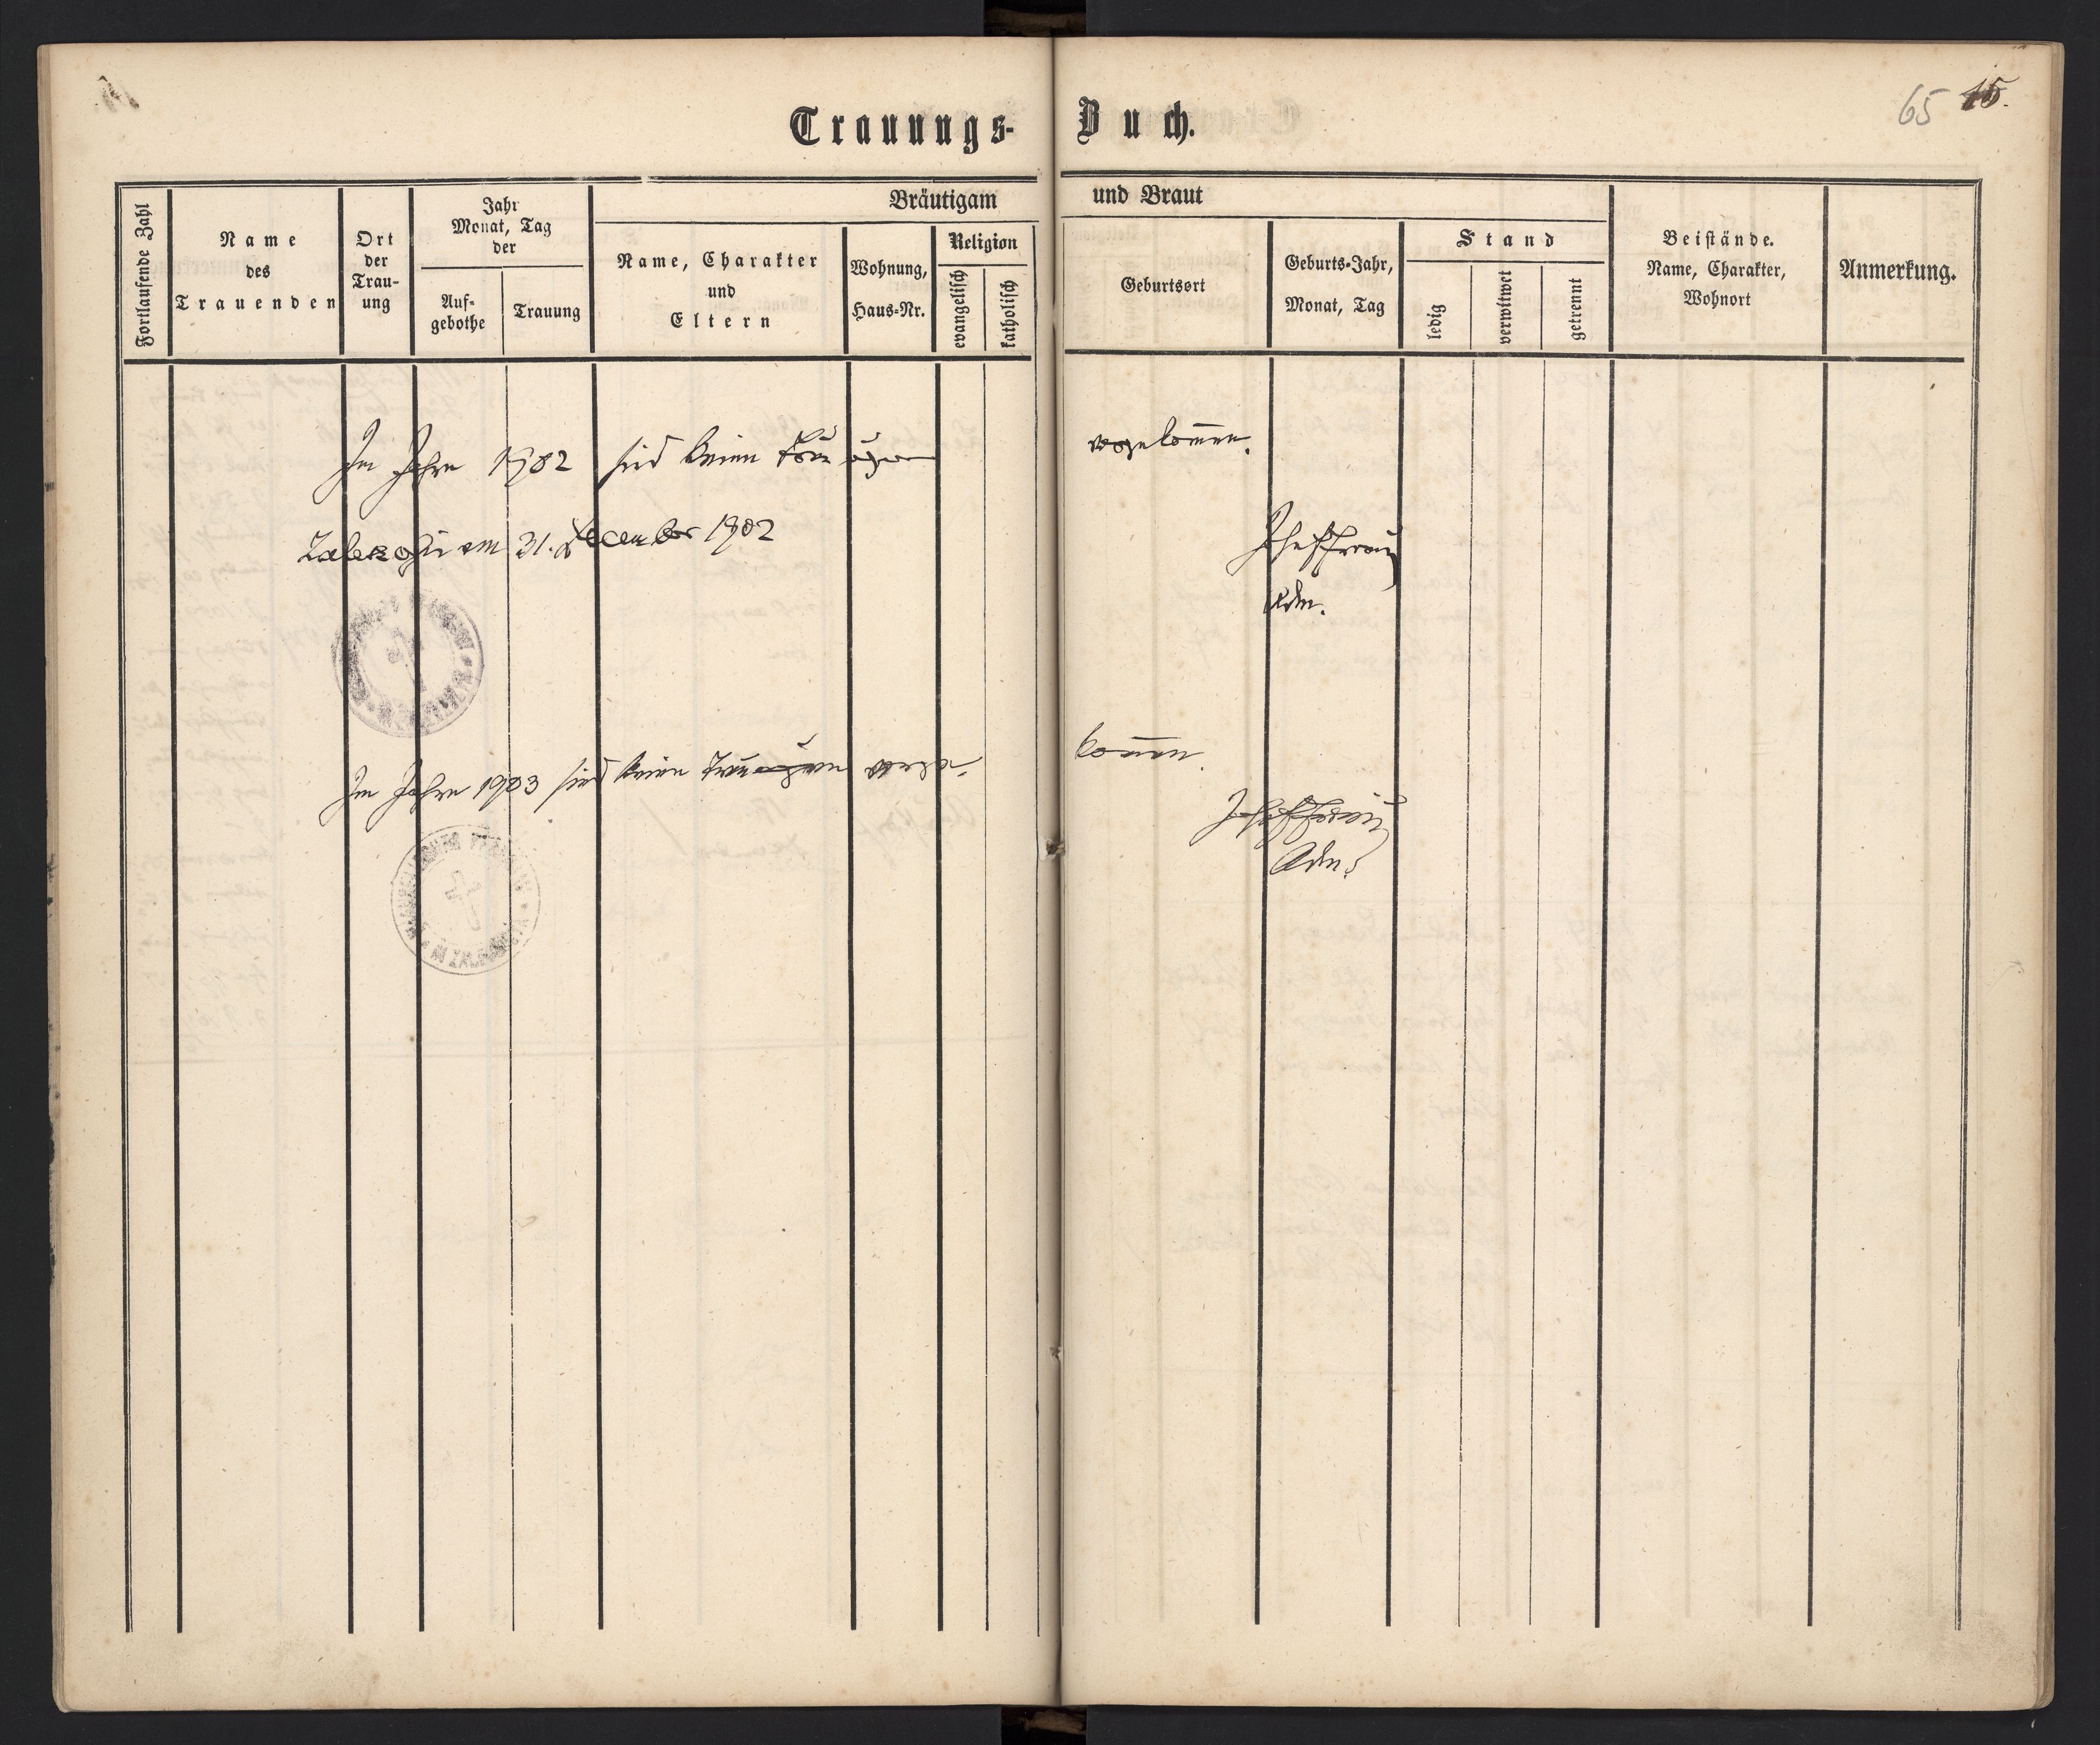 65 15.
Trauungs-Buch.
Fortlaufende Zahl
Name
des
Trauenden
Ort
der
Trau-
ung
Jahr
Monat, Tag
der
Auf-
gebothe
Trauung
Bräutigam und Braut
Name, Charakter
und
Eltern
Wohnung,
Haus-Nr.
Religion
evangelisch
katholisch
Geburtsort
Geburts-Jahr,
Monat, Tag
Stand
ledig
verwitwet
getrennt
Beistände.
Name, Charakter,
Wohnort
Anmerkung.
Im Jahre 1902 sind keine Trauungen vorgekommen.
am 31. December 1902
Im Jahre 1903 sind keine Trauungen vorge-
kommen.